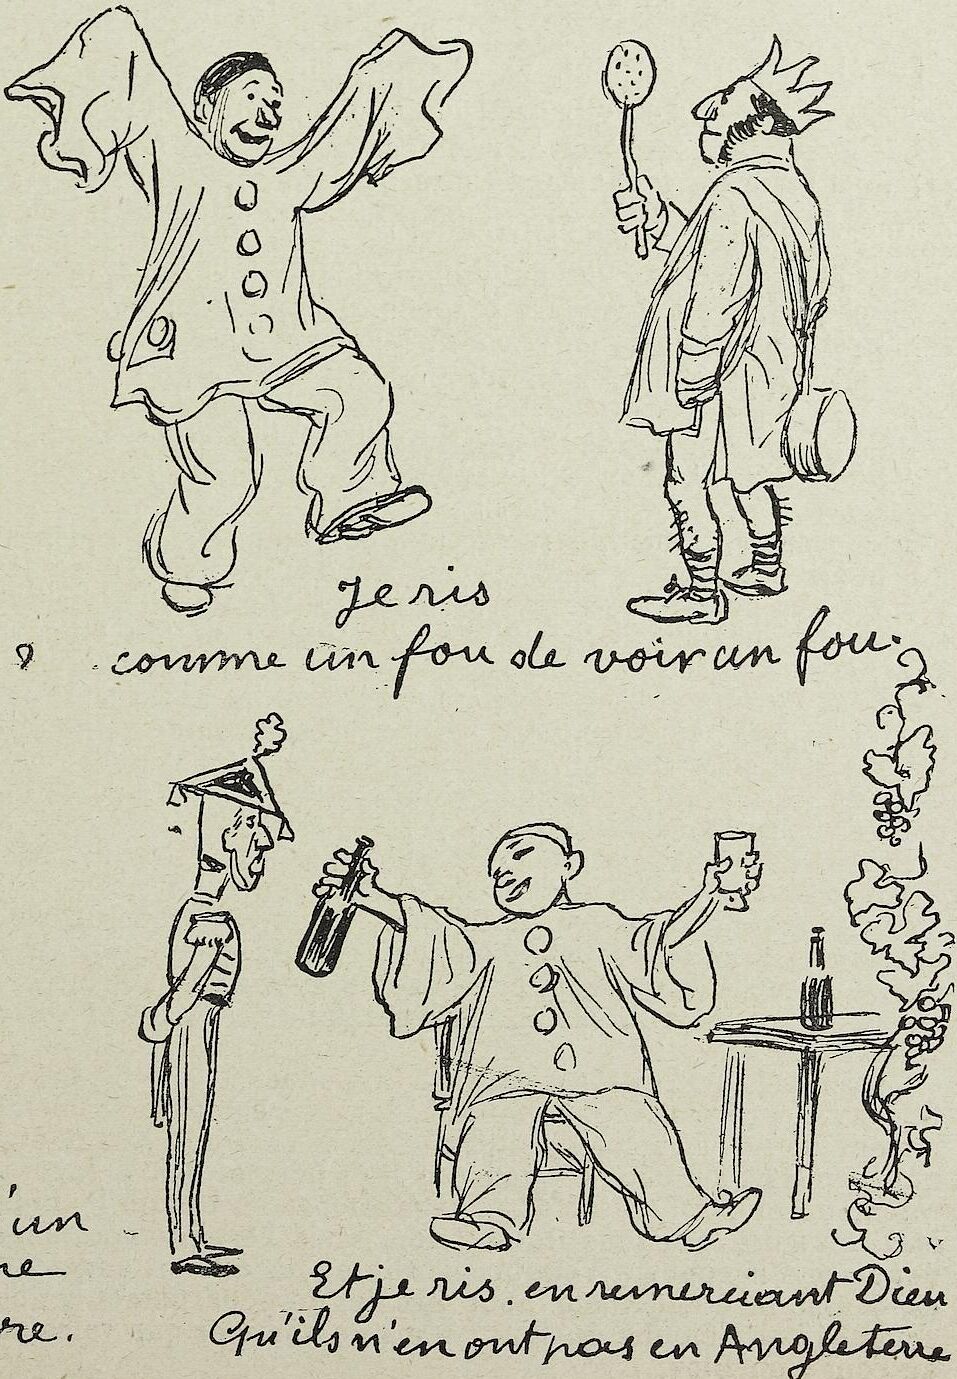 Je ris
comme un fou de voir un fou.
'un
ne
re.
Et je ris. en remerciant Dieu
Qu'ils n'en ont pas en Angleterre